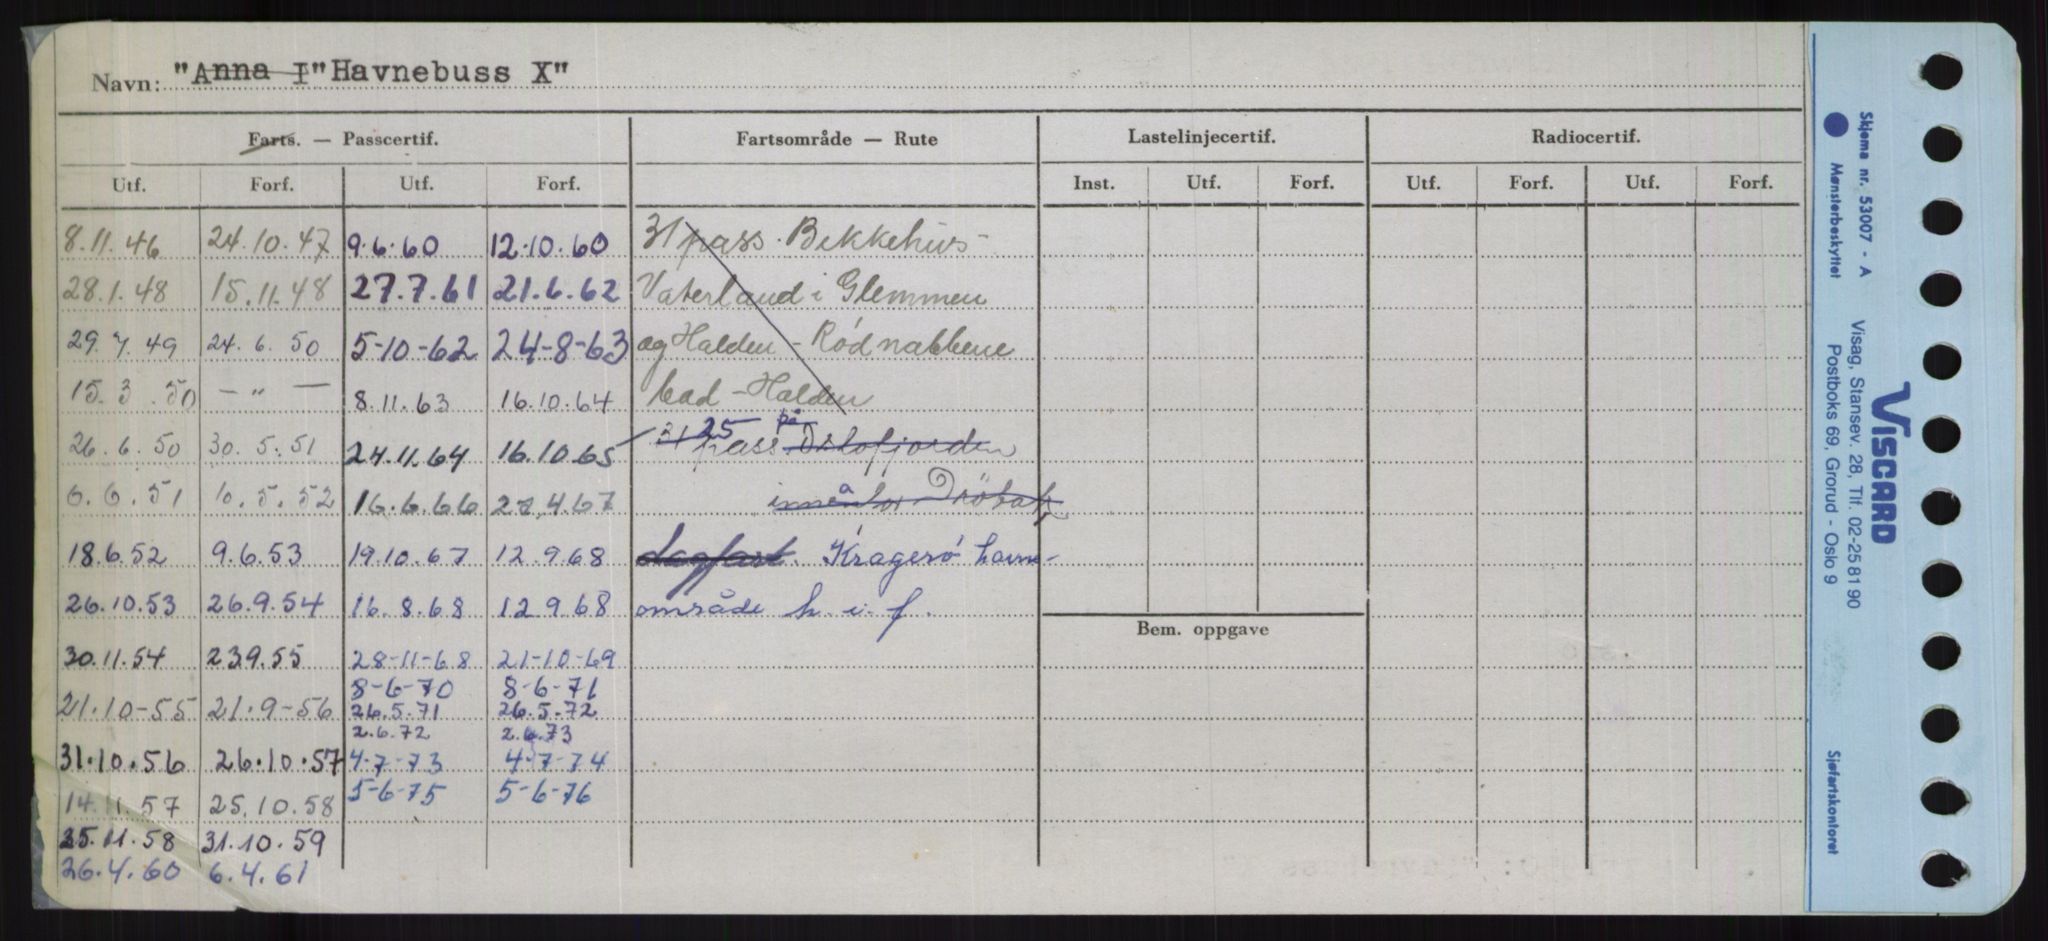 Navn: "Anna I" "Havnebuss X"
Farts. — Passcertif. Fartsområde — Rute Lastelinjecertif. Radiocertif.
Utf. Forf. Utf. Forf. Inst. Utf. Forf. Utf. Forf. Utf. Forf.
8.11.46 24.10.47 9.6.60 12.10.60 31 pass. Bekkehus-
28.1.48 15.11.48 27.7.61 21.6.62 Vaterland i Glemmen
29.7.49 24.6.50 5-10-62 24-8-63 og Halden - Rødnabbene
15.3.50 — " — 8.11.63 16.10.64 bad - Halden
26.6.50 30.5.51 24.11.64 16.10.65 31 25 pass på Oslofjorden
6.6.51 10.5.52 16.6.66 27.4.67 Drøbak
18.6.52 9.6.53 19.10.67 12.9.68 Kragerø havne-
26.10.53 26.9.54 16.8.68 12.9.68 område h. i. f.
Bem. oppgave
30.11.54 23.9.55 28-11-68 21-10-69
8-6-70 8-6-71
21.10-55 21.9-56 26.5.71 26.5.72
2.6.72 2.6.73
31.10.56 26.10.57 4-7-73 4-7-74
14.11.57 25.10.58 5-6-75 5-6-76
25.11.58 31.10.59
26.4.60 6.4.61
Skjema nr. 53007 - A
Mønsterbeskyttet
VISCARD
Visag, Stansev. 28, Tlf. 02-25 81 90
Postboks 69, Grorud - Oslo 9
Sjøfartskontoret